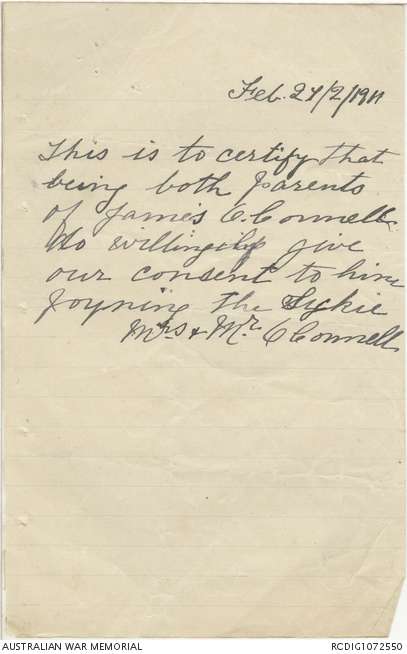 Feb. 27/2/1911
This is to certify that
being both parents
of James O.Connell
do willingily give
our consent to him
joyning the Tykie
Mrs & Mr. O Connell
AUSTRALIAN WAR MEMORIAL
RCDIG1072550